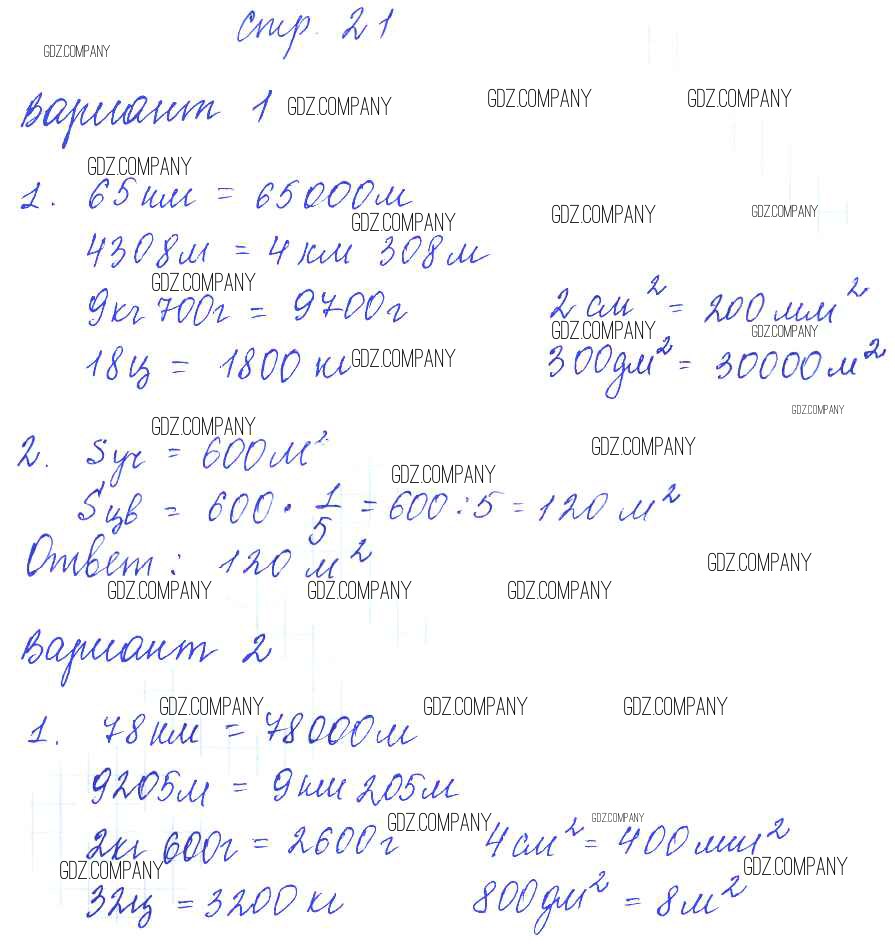 стр. 21
GDZ.COMPANY
Вариант 1 GDZ.COMPANY GDZ.COMPANY GDZ.COMPANY
GDZ.COMPANY
1. 65 км = 65000 м
GDZ.COMPANY GDZ.COMPANY GDZ.COMPANY
4308 м = 4 км 308 м
GDZ.COMPANY
9кг 700г = 9700г 2 см² = 200 мм²
GDZ.COMPANY GDZ.COMPANY
18ц = 1800 кг GDZ.COMPANY 300дм² = 30000 м²
GDZ.COMPANY
GDZ.COMPANY GDZ.COMPANY
2. Sуч = 600 м²
GDZ.COMPANY
Sцв = 600 · 1/5 = 600 : 5 = 120 м²
Ответ: 120 м² GDZ.COMPANY
GDZ.COMPANY GDZ.COMPANY GDZ.COMPANY
Вариант 2
GDZ.COMPANY GDZ.COMPANY GDZ.COMPANY
1. 78 км = 78000 м
9205 м = 9 км 205 м
GDZ.COMPANY GDZ.COMPANY
2кг 600г = 2600 г 4 см² = 400 мм²
GDZ.COMPANY GDZ.COMPANY
32ц = 3200 кг 800дм² = 8 м²